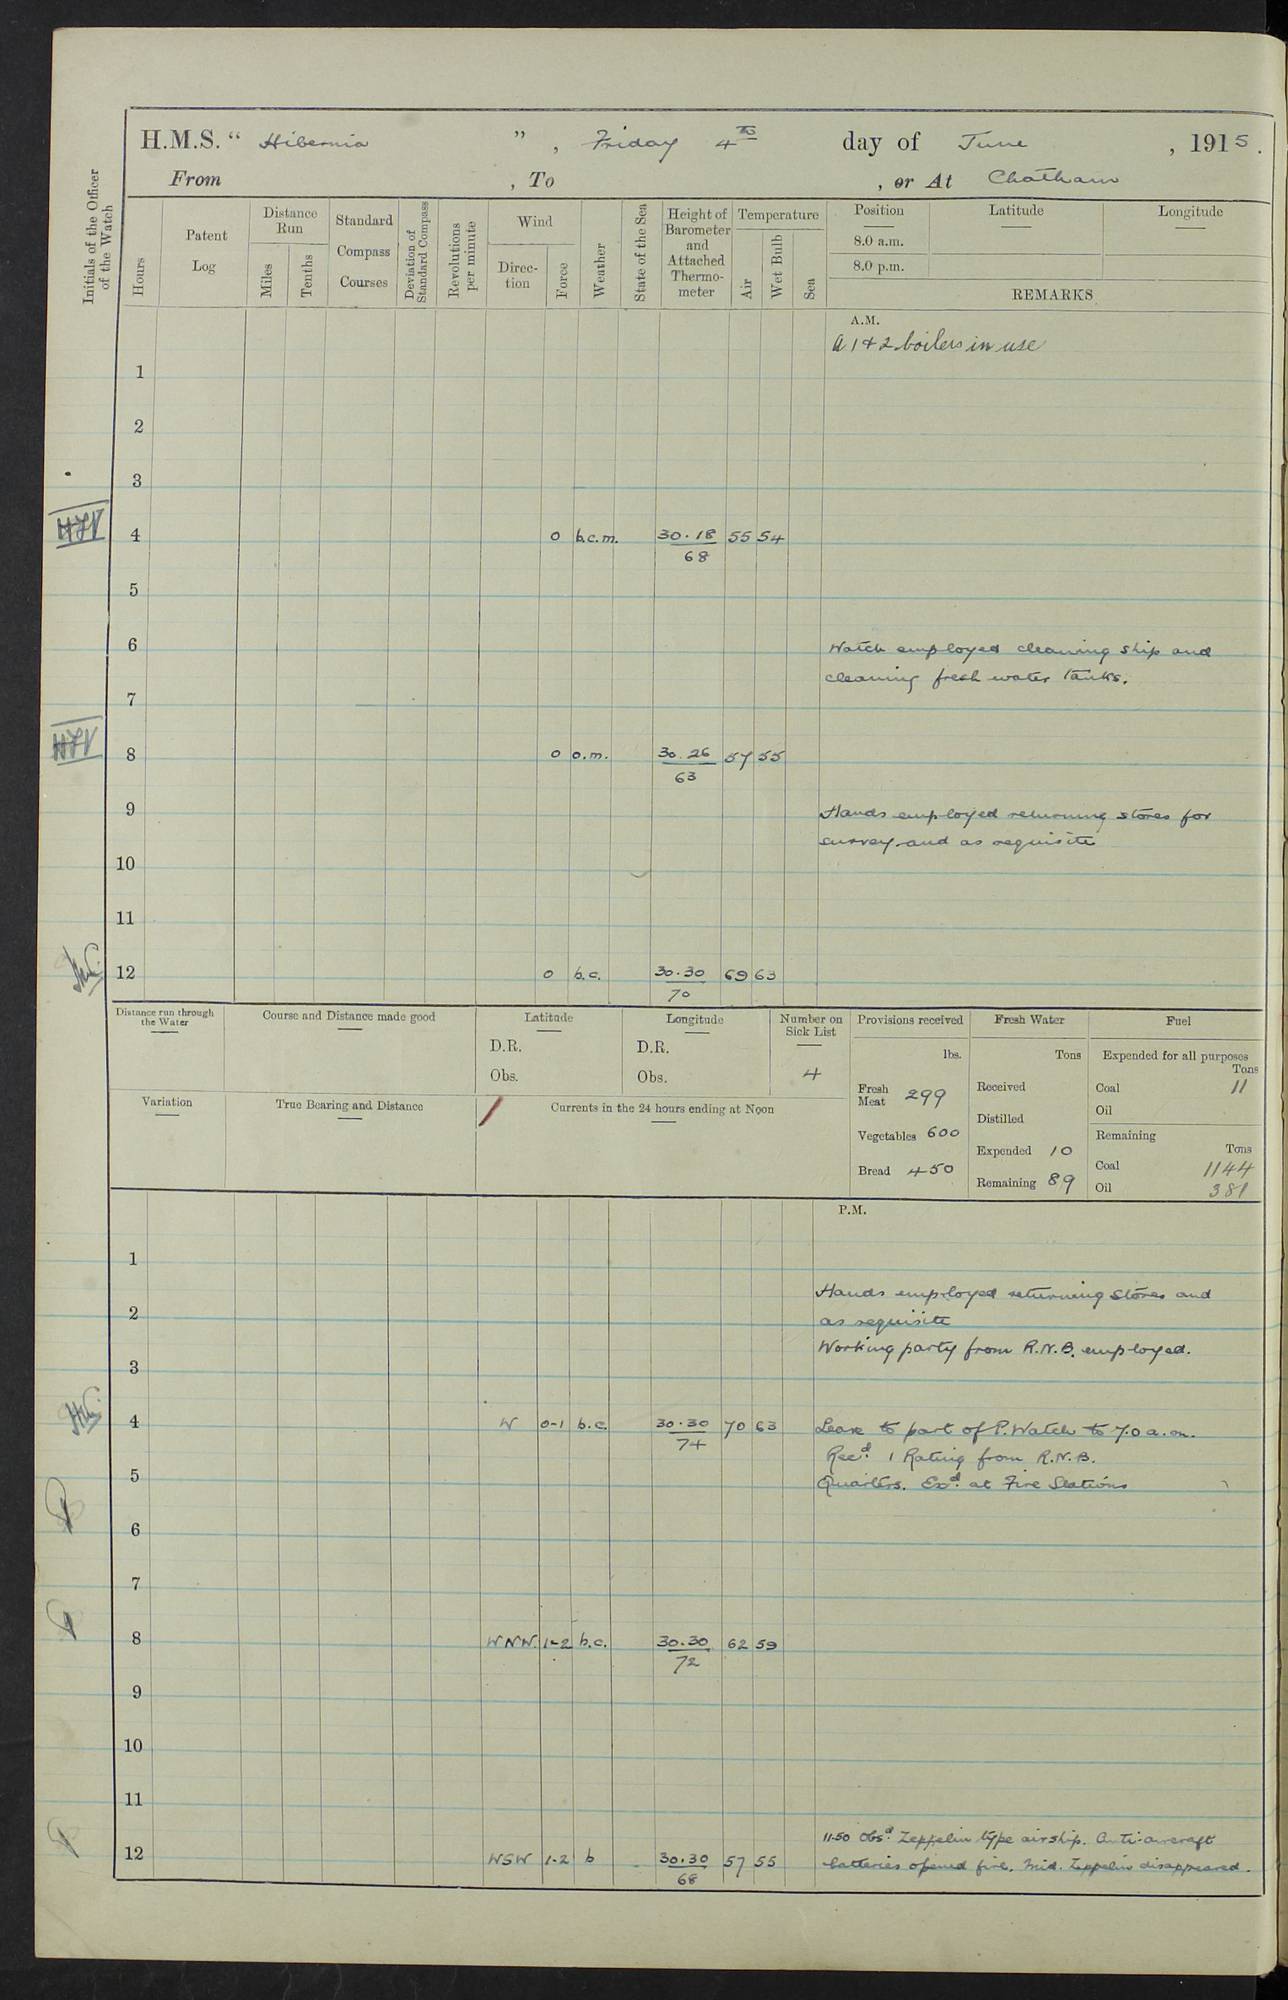 H.M.S. "Hibernia", Friday 4th day of June, 1915.
From , To , or At Chatham
Initials of the Officer of the Watch
Hours
Patent Log
Distance Run
Miles
Tenths
Standard Compass Courses
Deviation of Standard Compass
Revolutions per minute
Wind
Direc-tion
Force
Weather
State of the Sea
Height of Barometer and Attached Thermo-meter
Temperature
Air
Wet Bulb
Sea
Position
8.0 a.m.
8.0 p.m.
Latitude
Longitude
REMARKS
A.M.
A 1 & 2 boilers in use
1
2
3
4 0 b.c.m. 30.18 55 54
68
5
6 Watch employed cleaning ship and
cleaning fresh water tanks.
7
8 0 o.m. 30.26 57 55
63
9 Hands employed returning stores for
survey and as requisite
10
11
12 0 b.c. 30.30 69 63
70
Distance run through the Water
Course and Distance made good
Latitude
D.R.
Obs.
Longitude
D.R.
Obs.
Number on Sick List
4
Provisions received
lbs.
Fresh Meat 299
Vegetables 600
Bread 450
Fresh Water
Tons
Received
Distilled
Expended 10
Remaining 89
Fuel
Expended for all purposes
Tons
Coal 11
Oil
Remaining
Tons
Coal 1144
Oil 381
Variation
True Bearing and Distance
Currents in the 24 hours ending at Noon
P.M.
1
Hands employed returning stores and
2 as requisite
Working party from R.N.B. employed.
3
4 W 0-1 b.c. 30.30 70 63 Leave to part of P. Watch to 7.0 a.m.
74
Recd. 1 Rating from R.N.B.
5 Quarters. Exd. at Fire Stations
6
7
8 WNW. 1-2 b.c. 30.30 62 59
72
9
10
11
11.50 Obsd. Zeppelin type airship. Anti-aircraft
12 WSW 1-2 b 30.30 57 55 batteries opened fire. Mid. Zeppelin disappeared.
68